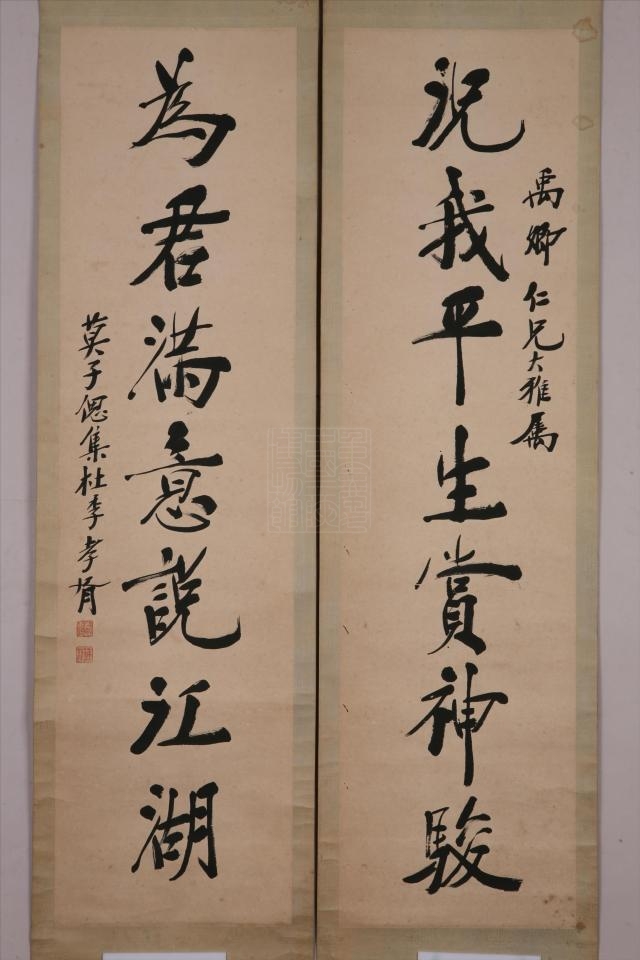 禹卿仁兄大雅屬
況我平生賞神駿
為君滿意說江湖
莫子偲集杜李 孝胥